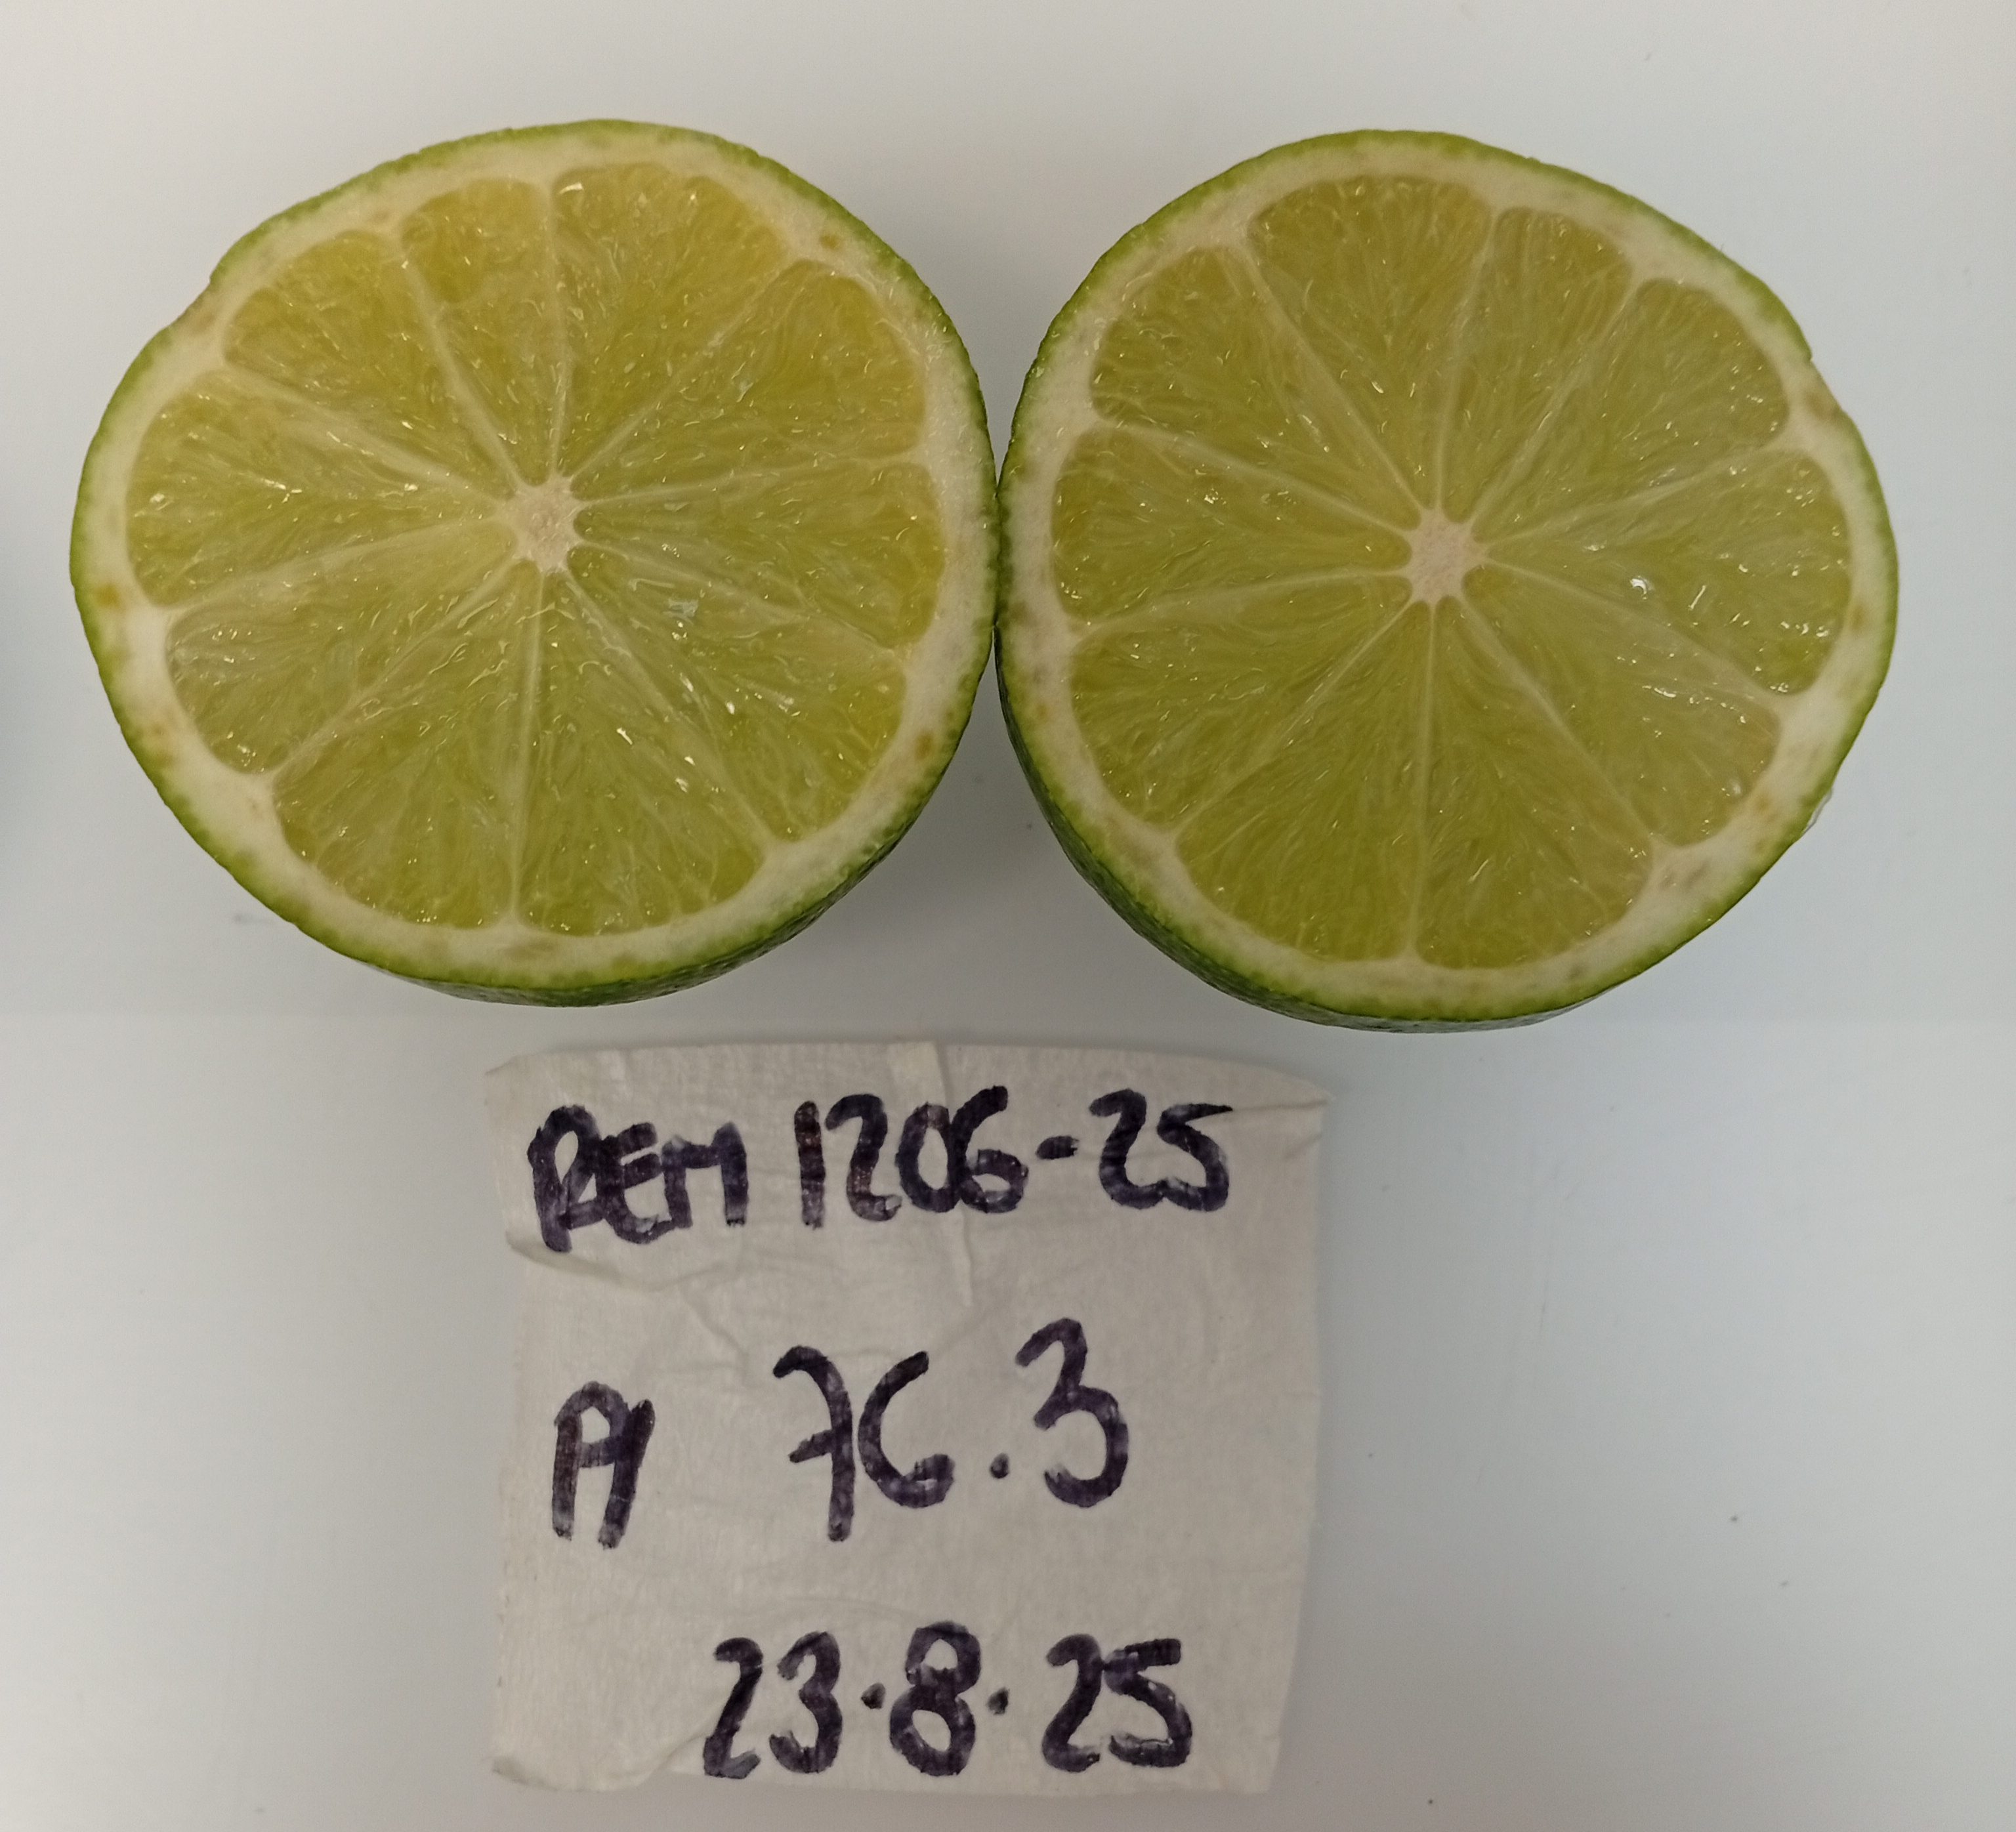 REM 1206-25
A 76.3
23.8.25